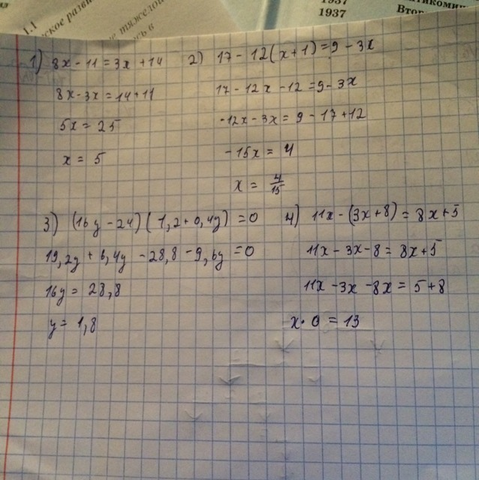 1.1
ское разви
не тяжелой
1937
1937
Втор
1) 8x - 11 = 3x + 14
8x - 3x = 14 + 11
5x = 25
x = 5
2) 17 - 12(x + 1) = 9 - 3x
17 - 12x - 12 = 9 - 3x
-12x - 3x = 9 - 17 + 12
-15x = 4
x = 4/15
3) (16y - 24)(1,2 + 0,4y) = 0
19,2y + 6,4y - 28,8 - 9,6y = 0
16y = 28,8
y = 1,8
4) 11x - (3x + 8) = 8x + 5
11x - 3x - 8 = 8x + 5
11x - 3x - 8x = 5 + 8
x · 0 = 13